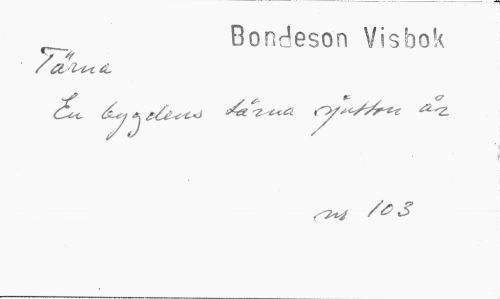 Bondeson Visbok
Tärna
En bygdens tärna sjutton år
nr 103